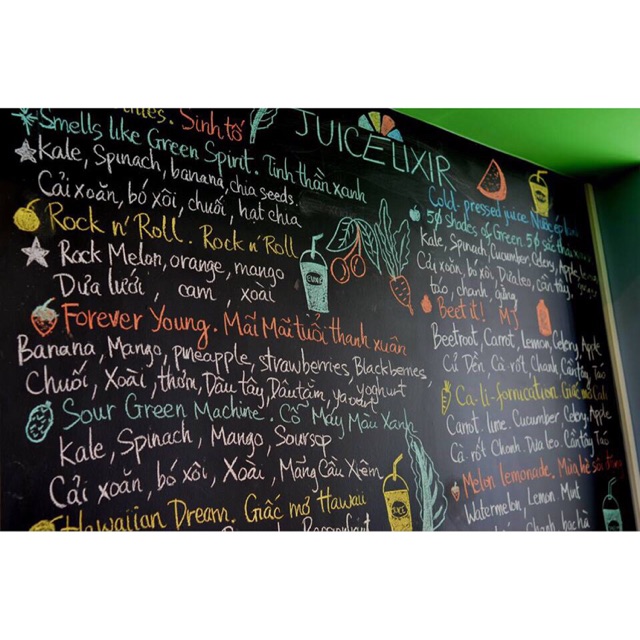 Sinh tố
JUICE ELIXIR
Smells like Green Spirit. Tinh thần xanh
Kale, Spinach, banana, chia seeds.
Cải xoăn, bó xôi, chuối, hạt chia
Rock n' Roll. Rock n' Roll
Rock Melon, orange, mango
Dưa lưới, cam, xoài
Forever Young. Mãi Mãi tuổi thanh xuân
Banana, Mango, pineapple, strawberries, Blackberries, yoghurt
Chuối, Xoài, thơm, Dâu tây, Dâu tằm, yaourt
Sour Green Machine, Cỗ Máy Màu Xanh
Kale, Spinach, Mango, Soursop
Cải xoăn, bó xôi, Xoài, Mãng Cầu Xiêm
Hawaiian Dream. Giấc mơ Hawaii
Cold-pressed juice Nước ép
50 shades of Green. 50 sắc thái
Kale, Spinach, Cucumber, Celery, Apple,
Cải xoăn, bó xôi, Dưa leo, Cần tây,
táo, chanh, gừng
Beet it! MJ
Beetroot, Carrot, Lemon, Celery, Apple
Củ Dền, Cà rốt, Chanh, Cần tây, Táo
Ca-li-fornication. Giấc mơ Cali
Carrot. lime. Cucumber Celery, Apple
Cà rốt Chanh Dưa leo. Cần tây Táo
Melon lemonade. Mùa hè
Watermelon, Lemon. Mint
Chanh bạc hà